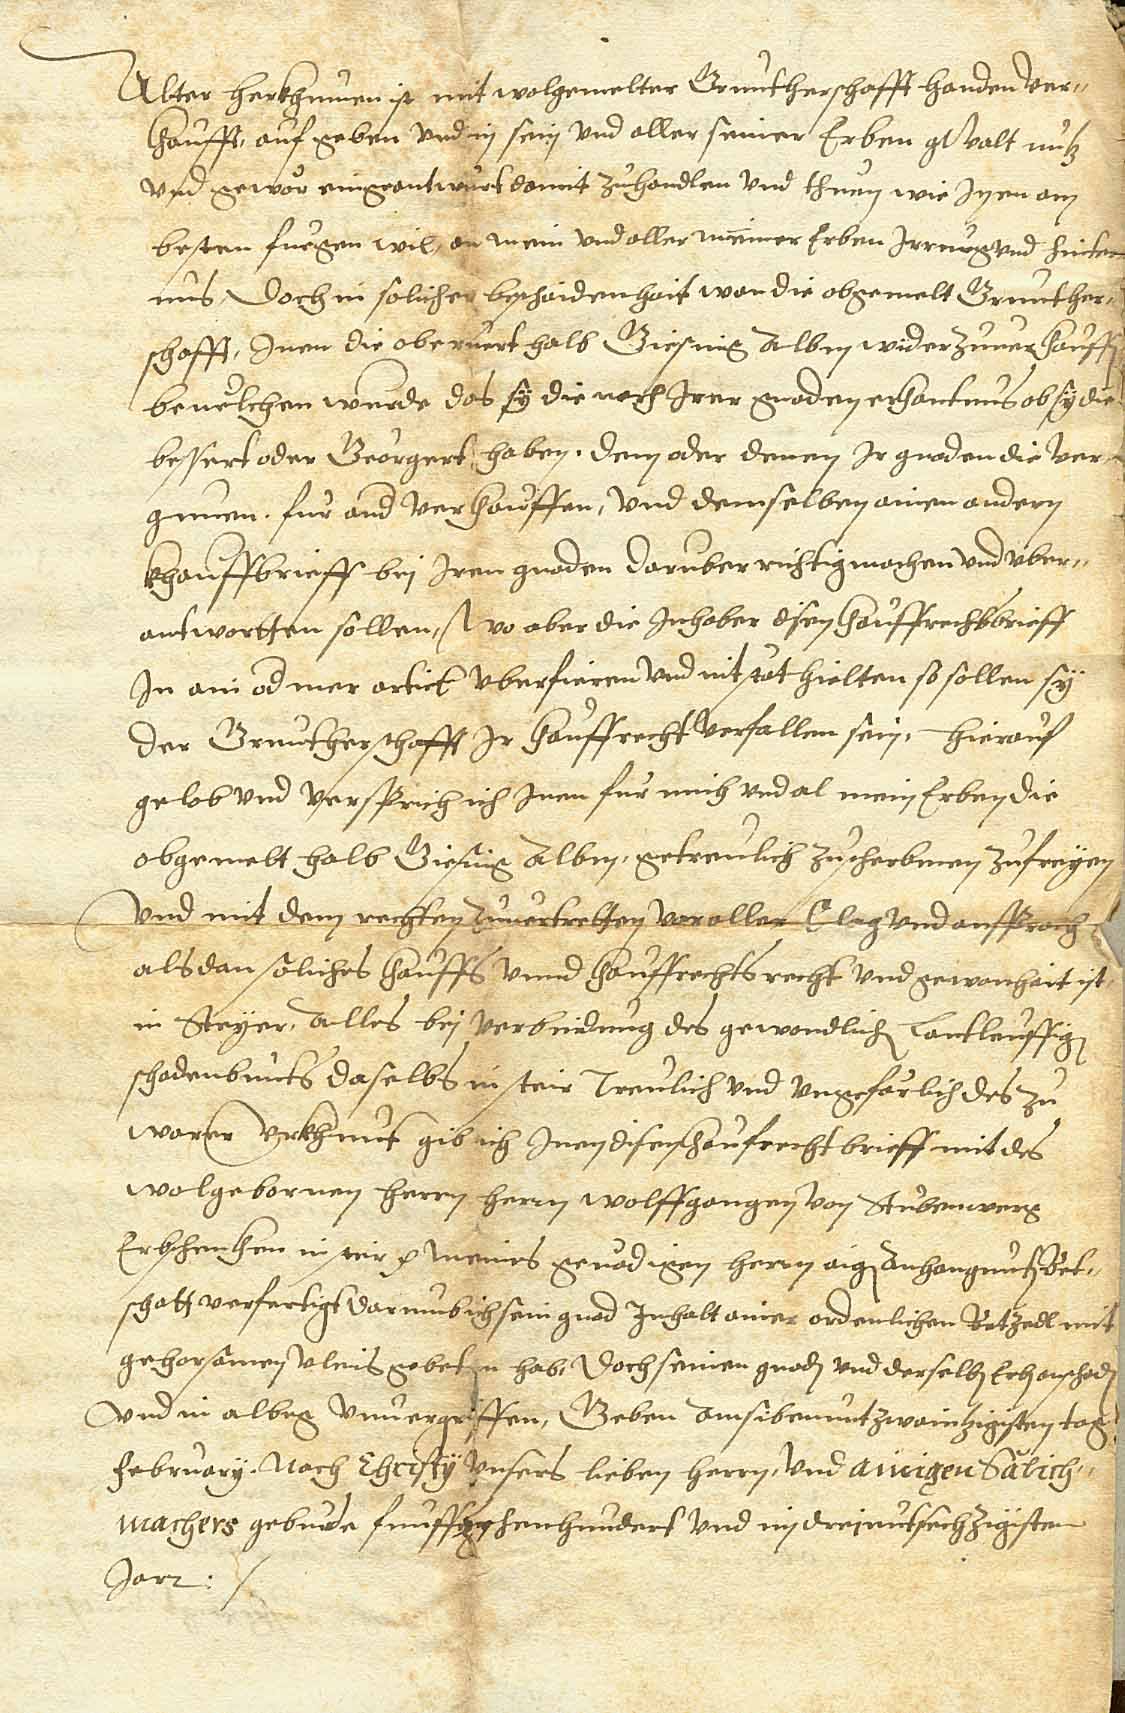 Alter herkhumen ist mit wolgemelter Gruntherschafft handen ver„
khaufft, auf geben und in sein und aller seiner Erben gwalt nutz
und gewör eingeantwurt damit zuhandlen und thuen wie Inen am
besten fuegen wil, an mein und aller meiner Erben Irrung und hinter„
nus, Doch in solicher beschaidenhait wan die obgemelt Grunther„
schafft, Inen die oberuert halb Giesing Albm wider zuuerkhauffn
beuelchen wurde das sy die nach Irer gnaden erkantnus ob sy die
bessert oder Geörgert haben. dem oder denen Ir gnaden die ver„
gunen. für and verkhauffen, und demselben ainen andern
khauffbrieff bei Iren gnaden daruber richtig machen und uber„
antwortten sollen, Wo aber die Inhaber disen khauffrechtsbrieff
In ain od mer articl uberfieren und nit stät hielten so sollen sy
der Gruntherschafft Ir khauffrecht verfallen sein. Hierauf
gelob und versprich ich Inen fur mich und al mein Erben die
obgemelt halb Giesing Albm, getreulich zuscherbmen zufreyen
und mit dem rechten zuuertretten vor aller Clag und ansprach
als dan soliches khauffs unnd khauffrechts recht und gewonhait ist,
in Steyer, Alles bei verbindung des gewondlichn Lantleuffign
schadenbunts daselbs in steir Treulich und ungefärlich des zu
warer Urkhunt gib ich Inen disen khaufrechtbrieff mit des
wolgebornen herrn herrn wolffgangen von Stubenwerg
Erbschenken in steir meines genadigen herrn aign Anhangunten Bet„
schatt verfertigt darumb ich sein gnad Inhalt ainer ordenlichen Betzedl mit
gehorsamen vleis gebeten hab, Doch seinen gnadn und derselbn Erbn an schadn
und in albeg unuergriffen, Geben am sibenuntzwaintzigisten tag
February. Nach Christy unsers lieben herrn, und ainigen Sälich„
machers geburde funffzechenhundert und im dreiuntsechzigisten
Jare: